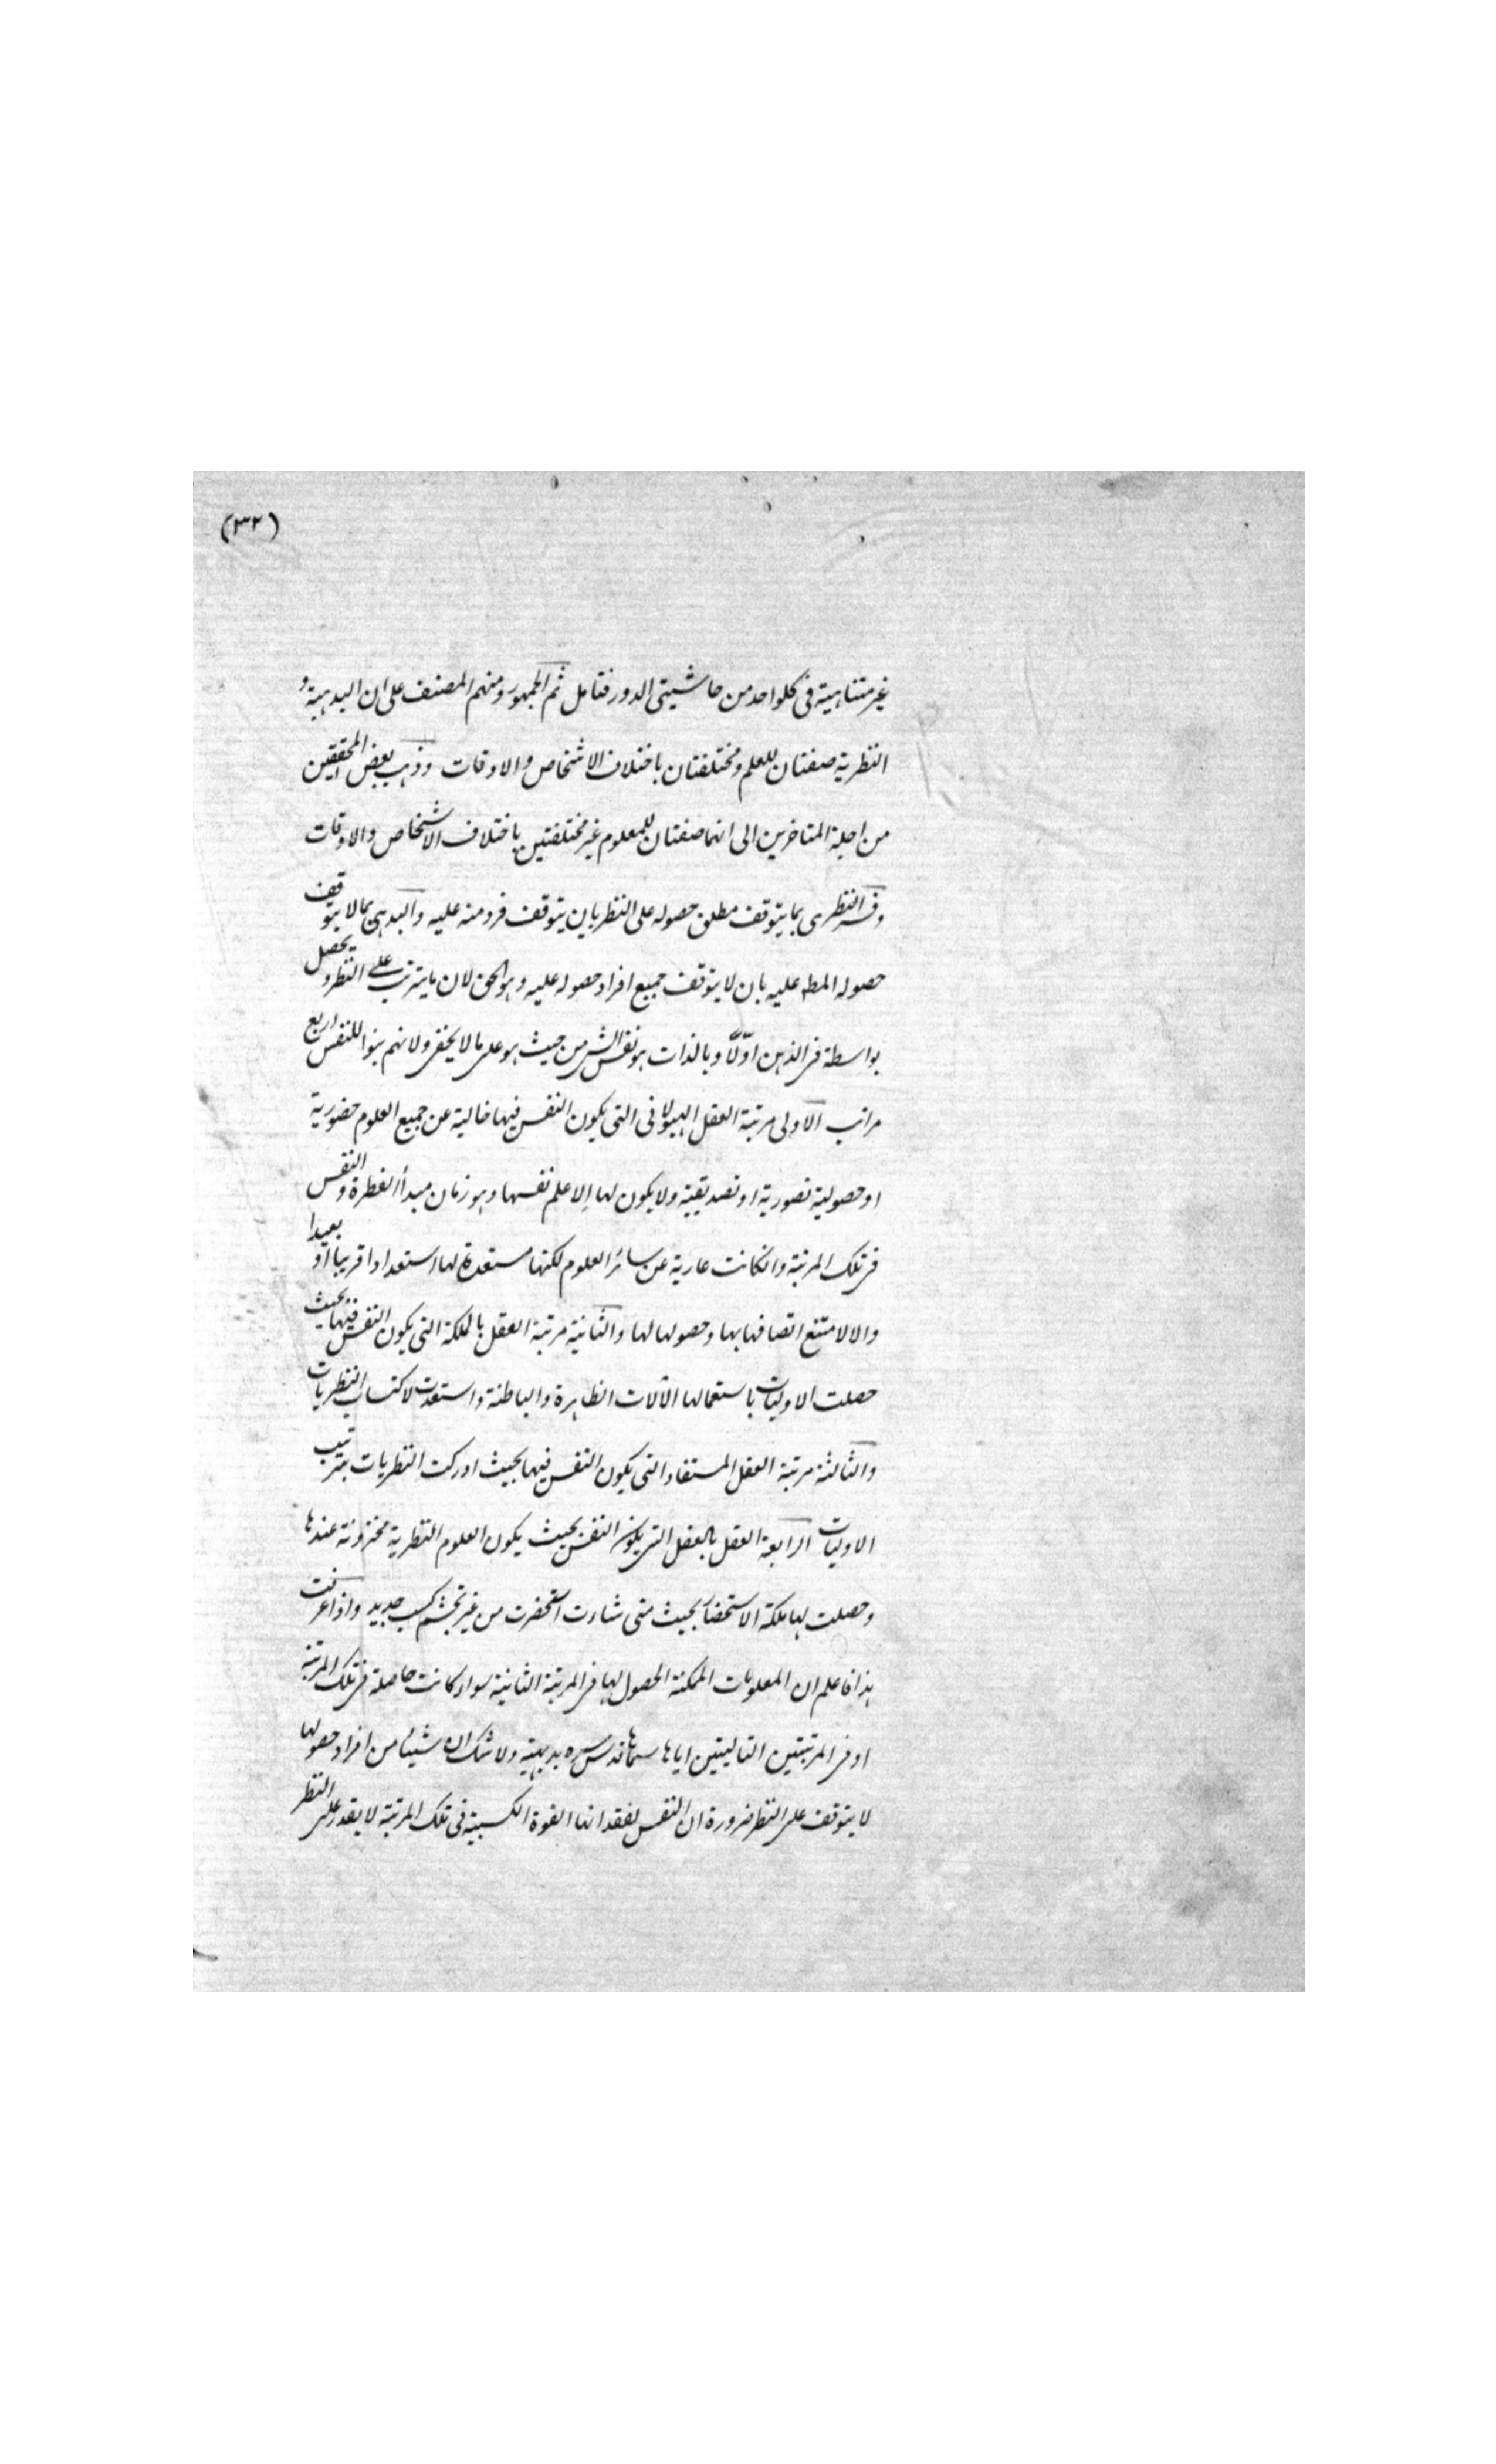 (٣٢)
غير متناهية فى كلواحد من حاشيتى الدور فتامل ثم الجمهور ومنهم المصنف على ان البديهية و
النظرية صفتان للعلم ومختلفتان باختلاف الاشخاص والاوقات وذهب بعض المحققين
من اجلة المتاخرين الى انهما صفتان للمعلوم غير مختلفتين باختلاف الاشخاص والاوقات
وفسر النظرى بما يتوقف مطلق حصوله على النظر بان يتوقف فرد منه عليه والبديهى بما لا يتوقف
حصوله المطم عليه بان لا يتوقف جميع افراد حصوله عليه وهو الحق لان ما يترتب على النظر ويحصل
بواسطة فى الذهن اولاً وبالذات هو نفس الشى من حيث هو على ما لا يخفى ولانهم بينوا للنفس اربع
مراتب الاولى مرتبة العقل الهيولانى التى يكون النفس فيها خالية عن جميع العلوم حضورية
او حصولية تصورية او تصديقية ولا يكون لها الا علم نفسها وهو زمان مبدأ الفطرة والنفس
فى تلك المرتبة وانكانت عارية عن سائر العلوم لكنها مستعدة لها استعدادا قريبا او بعيدا
والا لامتنع اتصافها بها وحصولها لها والثانية مرتبة العقل بالملكة التى يكون النفس فيها بحيث
حصلت الاوليات باستعمالها الآلات الظاهرة والباطنة واستعدت لاكتساب النظريات
والثالثة مرتبة العقل المستفاد التى يكون النفس فيها بحيث ادركت النظريات بترتيب
الاوليات الرابعة العقل بالفعل التى يكون النفس بحيث يكون العلوم النظرية مخزونة عندها
وحصلت لها ملكة الاستحضار بحيث متى شاءت استحضرت من غير تجشم كسب جديد واذا عرفت
هذا فاعلم ان المعلومات الممكنة الحصول لها فى المرتبة الثانية سواء كانت حاصلة فى تلك المرتبة
او فى المرتبتين التاليتين اياها سماها قدس سره بديهية ولا شك ان شيئا من افراد حصولها
لا يتوقف على النظر ضرورة ان النفس لفقدانها القوة الكسبية فى تلك المرتبة لا يقدر على النظر